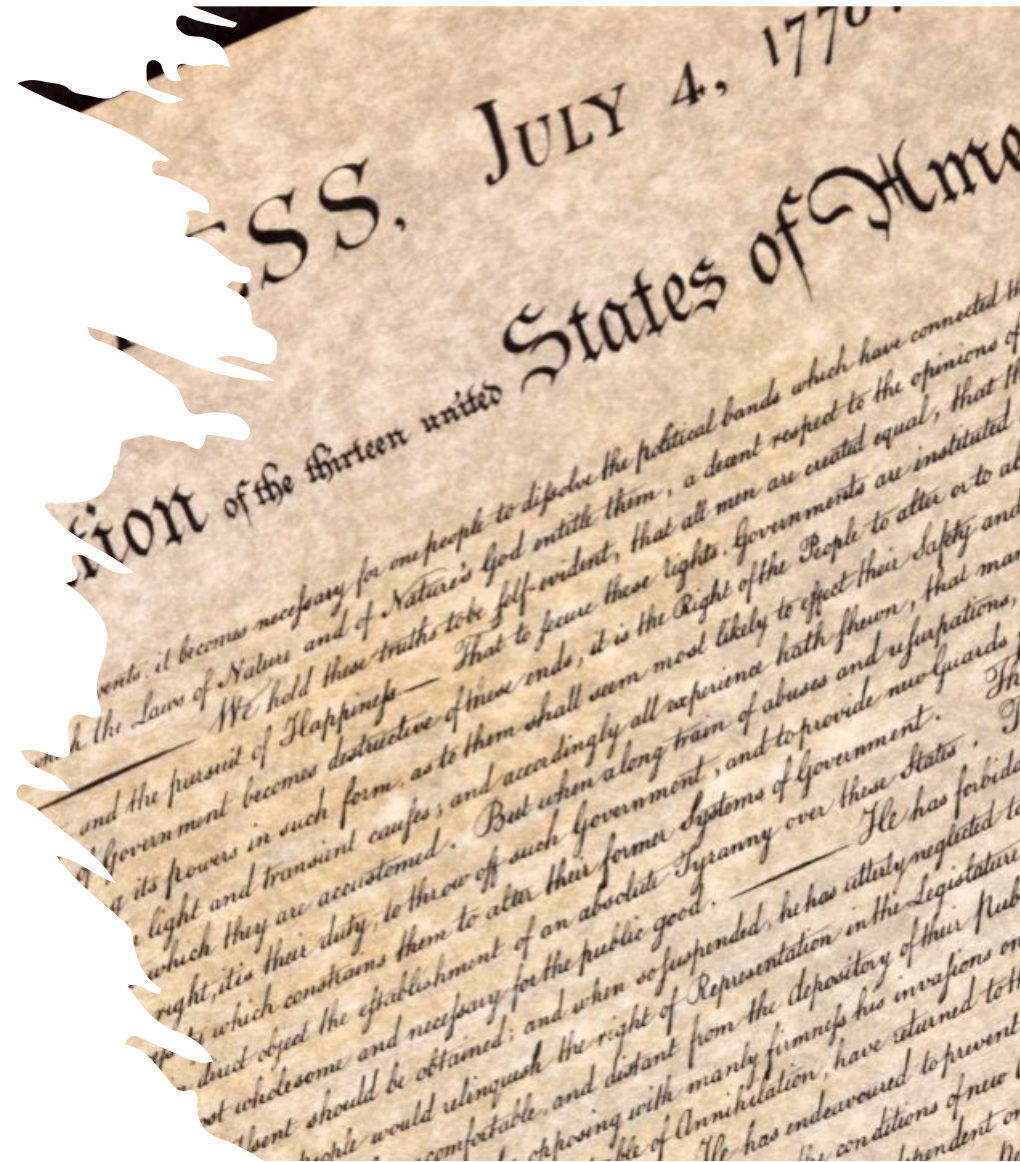 ESS, JULY 4, 1776.
tion of the thirteen united States of Ame
vents, it becomes necessary for one people to dissolve the political bands which have connected th
the Laws of Nature and of Nature's God entitle them, a decent respect to the opinions of
We hold these truths to be self-evident, that all men are created equal, that th
and the pursuit of Happiness — That to secure these rights, Governments are instituted
Government becomes destructive of these ends, it is the Right of the People to alter or to ab
its powers in such form, as to them shall seem most likely to effect their Safety and
light and transient causes; and accordingly all experience hath shewn, that man
which they are accustomed. But when a long train of abuses and usurpations,
right, it is their duty, to throw off such Government, and to provide new Guards
which constrains them to alter their former Systems of Government. Th
direct object the establishment of an absolute Tyranny over these States. T
st wholesome and necessary for the public good. — He has forbidd
Assent should be obtained; and when so suspended, he has utterly neglected to
people would relinquish the right of Representation in the Legislature
uncomfortable, and distant from the depository of their Pub
opposing with manly firmness his invasions on
of Annihilation, have returned to th
He has endeavoured to prevent
the conditions of new
dependent on